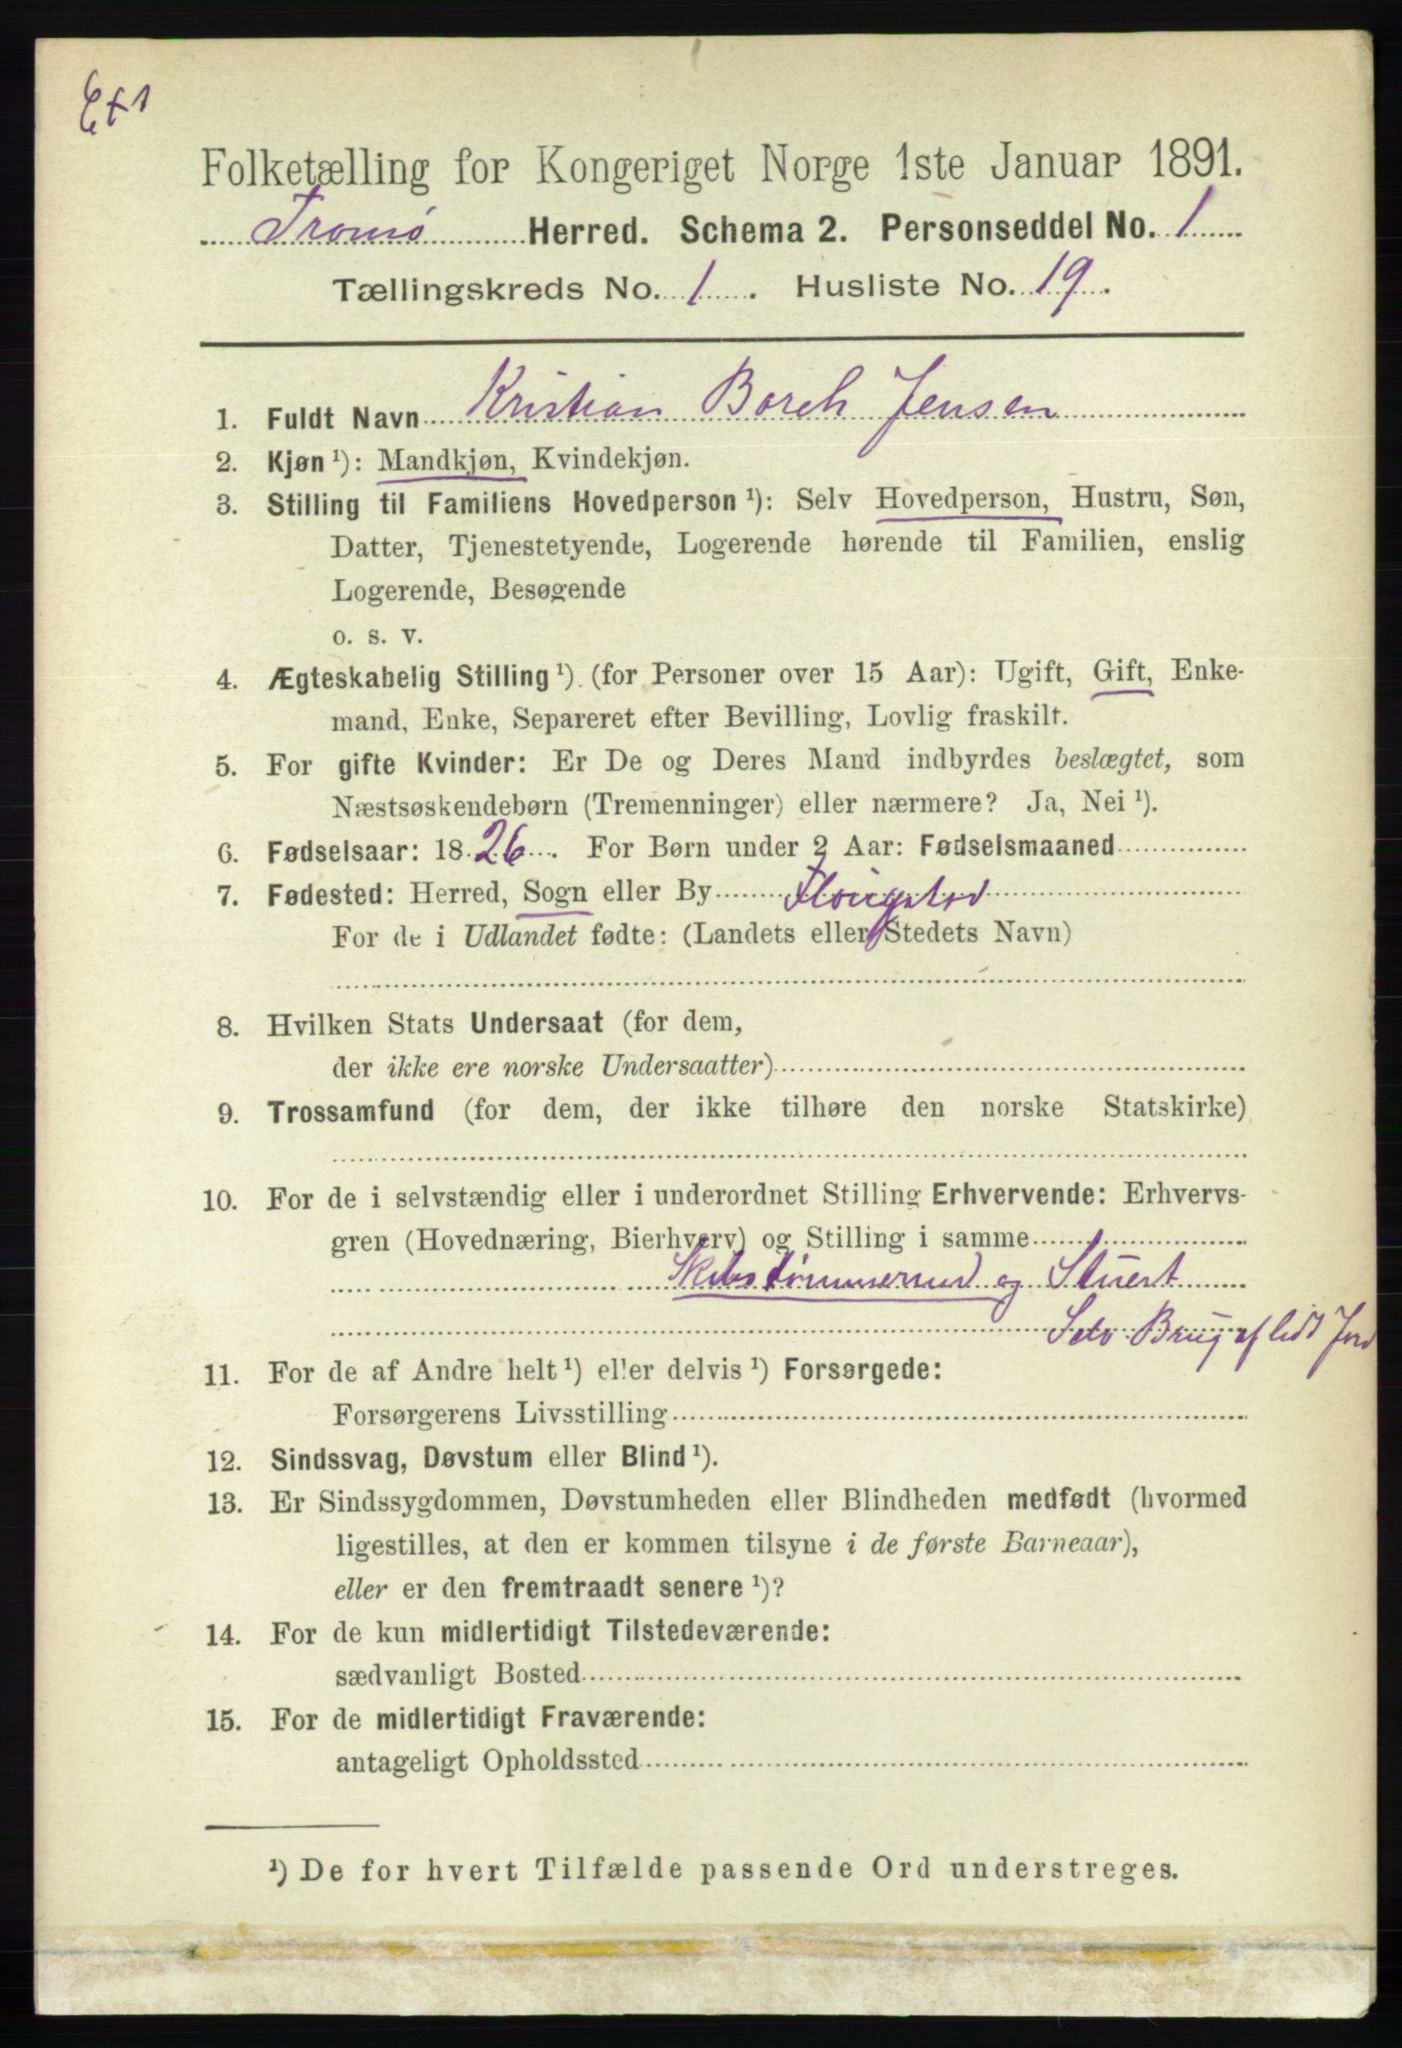 Ext
Folketælling for Kongeriget Norge 1ste Januar 1891.
Tromø Herred. Schema 2. Personseddel No. 1
Tællingskreds No. 1. Husliste No. 19.
1. Fuldt Navn Kristian Borch Jensen
2. Kjøn ¹): Mandkjøn, Kvindekjøn.
3. Stilling til Familiens Hovedperson ¹): Selv Hovedperson, Hustru, Søn,
Datter, Tjenestetyende, Logerende hørende til Familien, enslig
Logerende, Besøgende
o. s. v.
4. Ægteskabelig Stilling ¹) (for Personer over 15 Aar): Ugift, Gift, Enke-
mand, Enke, Separeret efter Bevilling, Lovlig fraskilt.
5. For gifte Kvinder: Er De og Deres Mand indbyrdes beslægtet, som
Næstsøskendebørn (Tremenninger) eller nærmere? Ja, Nei ¹).
6. Fødselsaar: 1826. For Børn under 2 Aar: Fødselsmaaned
7. Fødested: Herred, Sogn eller By
For de i Udlandet fødte: (Landets eller Stedets Navn)
8. Hvilken Stats Undersaat (for dem,
der ikke ere norske Undersaatter)
9. Trossamfund (for dem, der ikke tilhøre den norske Statskirke)
10. For de i selvstændig eller i underordnet Stilling Erhvervende: Erhvervs-
gren (Hovednæring, Bierhverv) og Stilling i samme
Skibstømmermd og Stuert
Selv Brug af lidt Jord
11. For de af Andre helt ¹) eller delvis ¹) Forsørgede:
Forsørgerens Livsstilling
12. Sindssvag, Døvstum eller Blind ¹).
13. Er Sindssygdommen, Døvstumheden eller Blindheden medfødt (hvormed
ligestilles, at den er kommen tilsyne i de første Barneaar),
eller er den fremtraadt senere ¹)?
14. For de kun midlertidigt Tilstedeværende:
sædvanligt Bosted
15. For de midlertidigt Fraværende:
antageligt Opholdssted
¹) De for hvert Tilfælde passende Ord understreges.